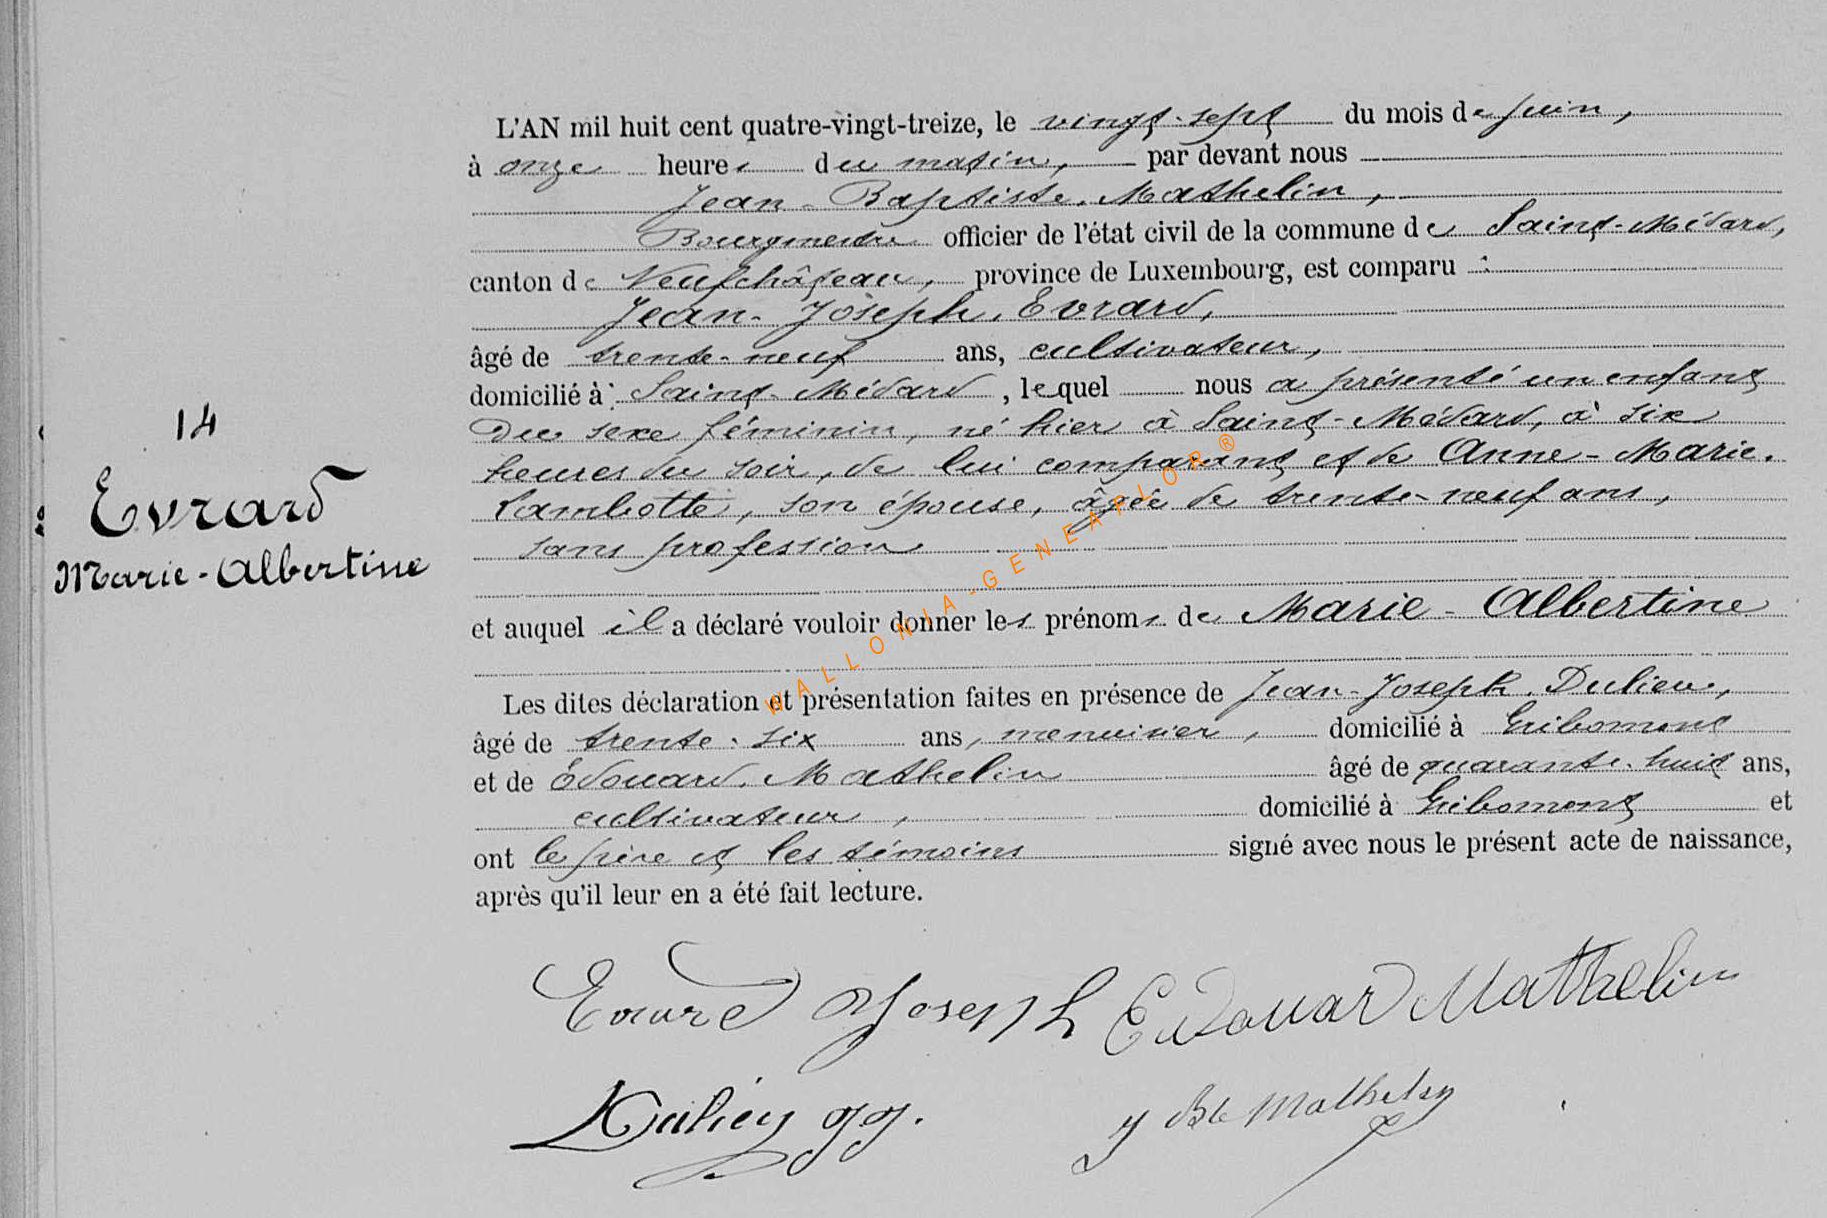 14
Evrard
Marie-Albertine
L'AN mil huit cent quatre-vingt-treize, le vingt-sept du mois de juin,
à onze heures du matin, par devant nous
Jean-Baptiste Mathelin,
Bourgmestre officier de l'état civil de la commune de Saint-Médard,
canton de Neufchâteau, province de Luxembourg, est comparu :
Jean-Joseph Evrard,
âgé de trente-neuf ans, cultivateur,
domicilié à Saint-Médard, lequel nous a présenté un enfant
du sexe féminin, né hier à Saint-Médard, à six
heures du soir, de lui comparant et de Anne-Marie
Lambotte, son épouse, âgée de trente-neuf ans,
sans profession
et auquel il a déclaré vouloir donner les prénoms de Marie-Albertine
Les dites déclaration et présentation faites en présence de Jean-Joseph Dulieu,
âgé de trente-six ans, menuisier, domicilié à Gribomont
et de Edouard Mathelin âgé de quarante-huit ans,
cultivateur, domicilié à Gribomont et
ont le père et les témoins signé avec nous le présent acte de naissance,
après qu'il leur en a été fait lecture.
Evard Joseph Edouard Mathelin
Dulieu JJ. J Bte Mathelin
WALLONIA-GENEAFLOR®